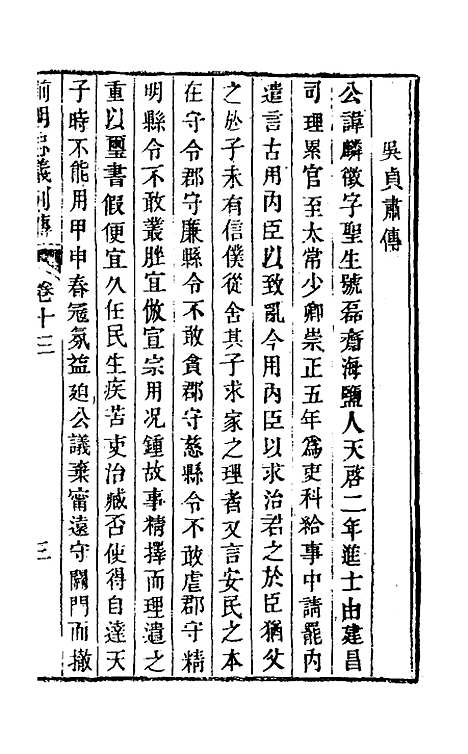 吳貞肅傳
公諱麟徵字聖生號磊齋海鹽人天啓二年進士由建昌
司理累官至太常少卿崇正五年爲吏科給事中請罷內
遣言古用內臣以致亂今用內臣以求治君之於臣猶父
之於子未有信僕從舍其子求家之理者又言安民之本
在守令郡守廉縣令不敢貪郡守慈縣令不敢虐郡守精
明縣令不敢叢脞宜倣宣宗用况鍾故事精擇而理遣之
重以璽書假便宜久任民生疾苦吏治臧否使得自達天
子時不能用甲申春冦氛益廹公議棄甯遠守關門而撤
前明忠義別傳
卷十三
三